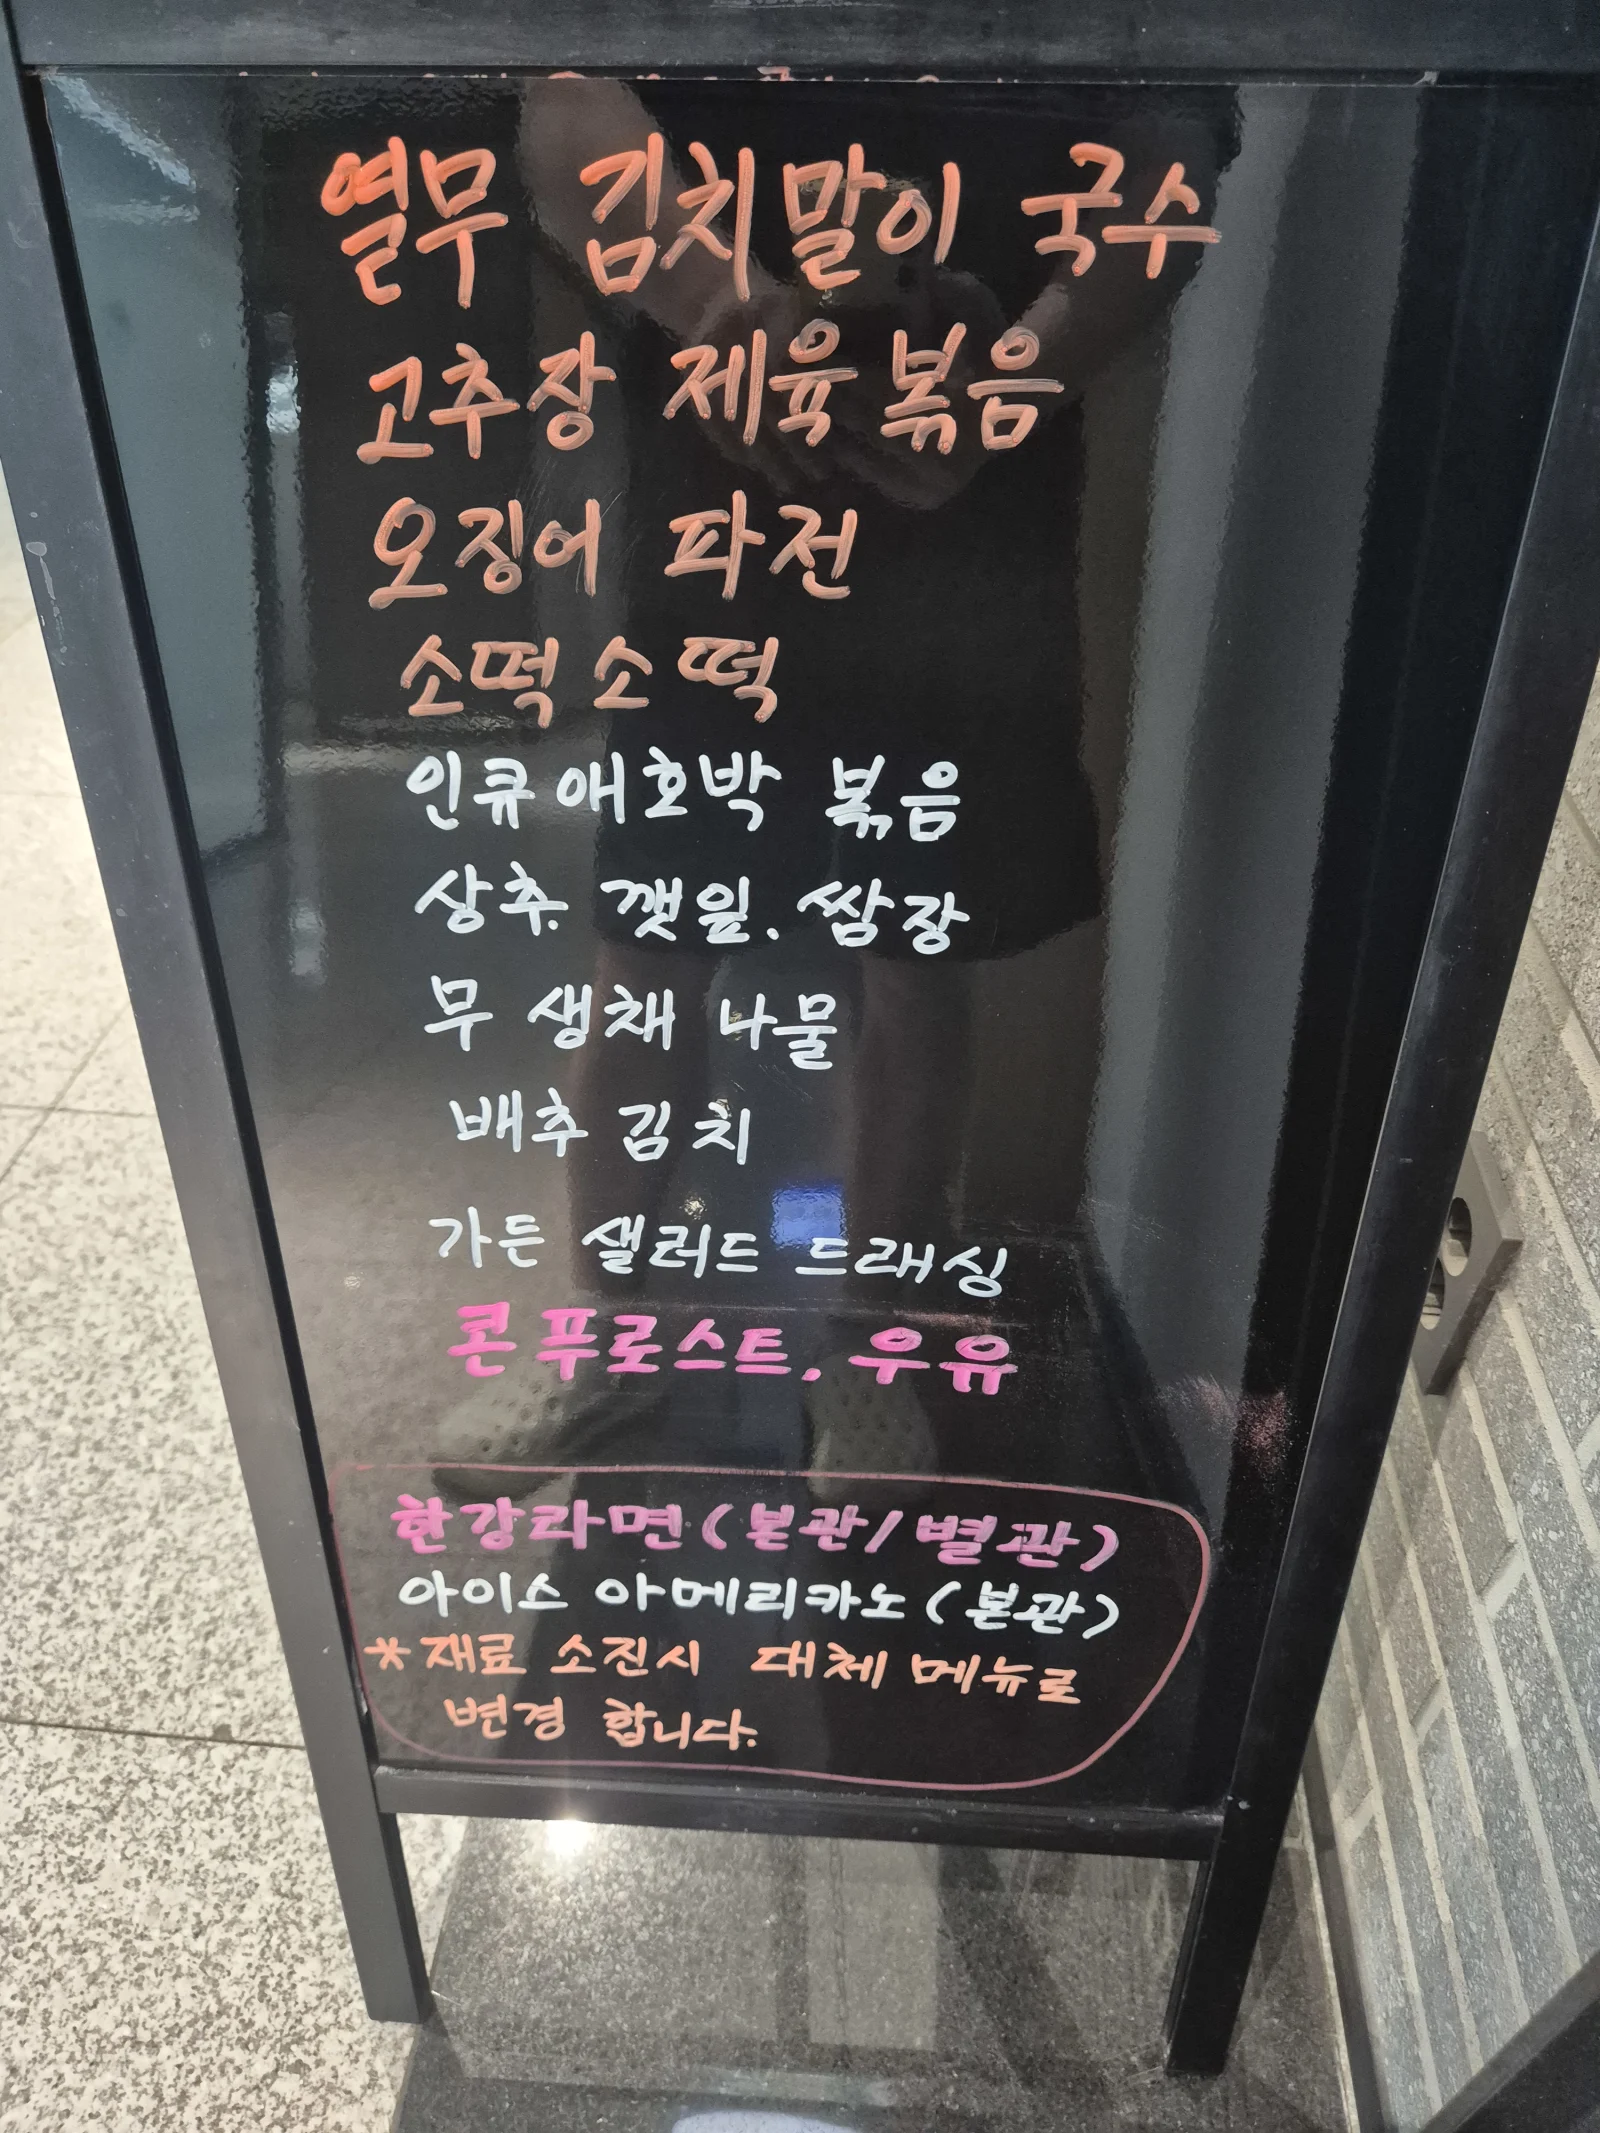 열무 김치말이 국수
고추장 제육볶음
오징어 파전
소떡소떡
인큐애호박 볶음
상추. 깻잎. 쌈장
무 생채 나물
배추김치
가든 샐러드 드래싱
콘푸로스트. 우유
한강라면(본관/별관)
아이스 아메리카노(본관)
*재료 소진시 대체 메뉴로
변경 합니다.